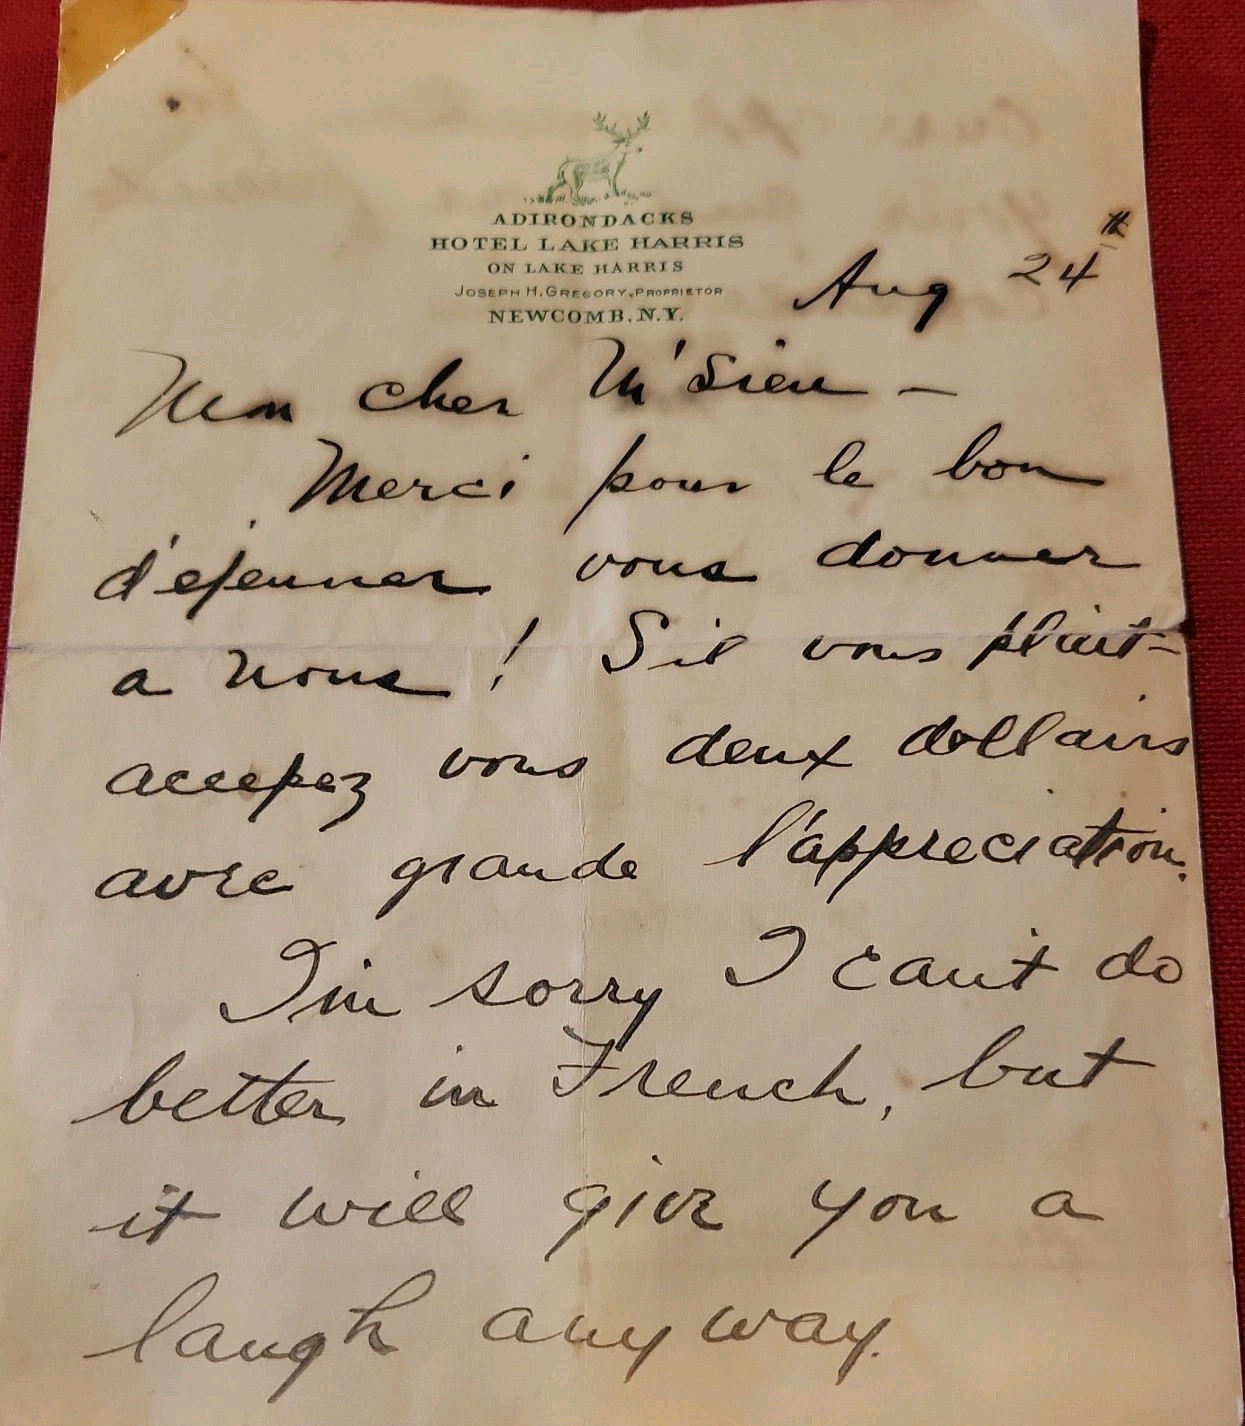 ADIRONDACKS
HOTEL LAKE HARRIS
ON LAKE HARRIS
JOSEPH H. GREGORY, PROPRIETOR
NEWCOMB, N.Y.
Aug 24th
Mon cher M'Sieu –
Merci pour le bon
d'ejeuner vous donner
a nous! Sil vous plait–
accepez vous deux dollairs
avec grande l'appreciation.
I'm sorry I can't do
better in French, but
it will give you a
laugh anyway.